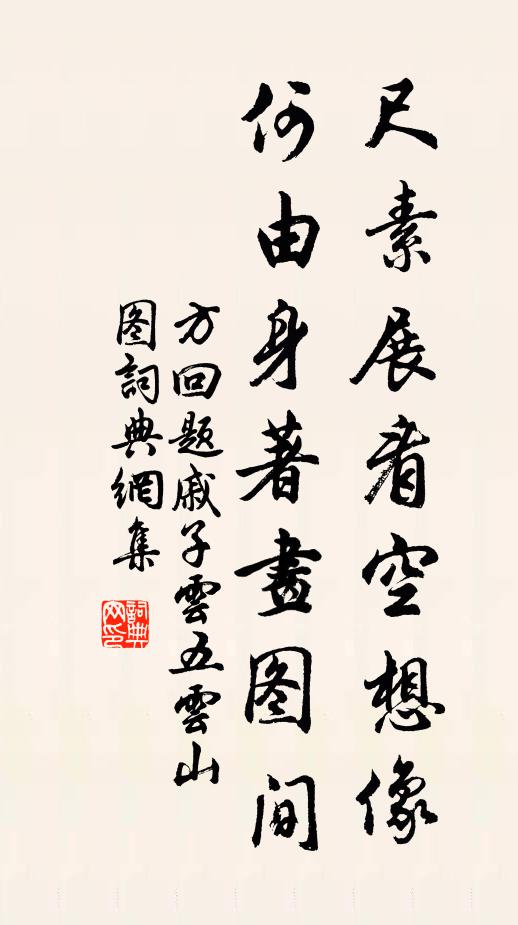 尺素展看空想像
何由身著畫图間
方回题戚子雲五雲山
图詞典網集
詞典网印